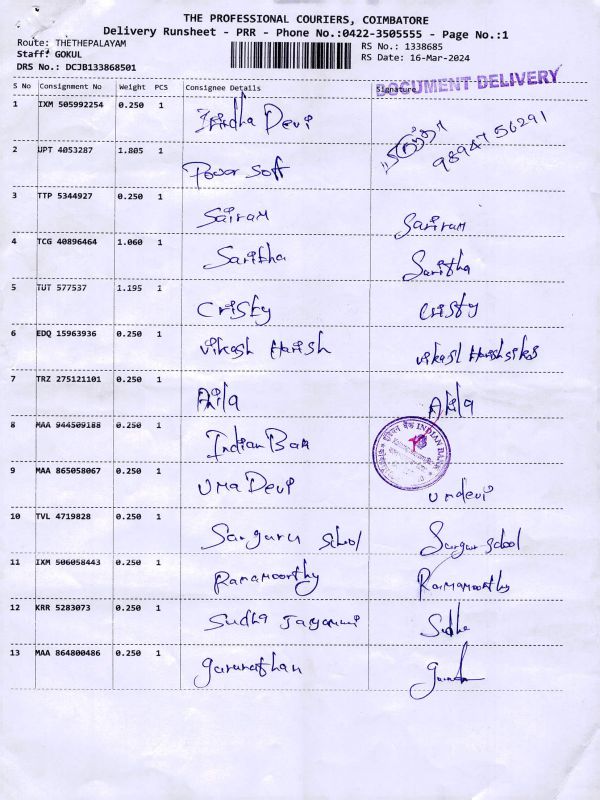 THE PROFESSIONAL COURIERS, COIMBATORE
Delivery Runsheet - PRR - Phone No.:0422-3505555 - Page No.:1
Route: THETHEPALAYAM
Staff: GOKUL
DRS No.: DCJB133868501
RS No.: 1338685
RS Date: 16-Mar-2024
DOCUMENT DELIVERY
S No Consignment No Weight PCS Consignee Details Signature
1 IXM 505992254 0.250 1 Devi
9894756291
2 UPT 4053287 1.805 1 Power Soft
3 TTP 5344927 0.250 1 Sairam Sairam
4 TCG 40896464 1.060 1 Saritha Saritha
5 TUT 577537 1.195 1 Cristy Cristy
6 EDQ 15963936 0.250 1 Vikash Harish Vikash
7 TRZ 275121101 0.250 1 Akila Akila
8 MAA 944509188 0.250 1 Indian Ban INDIAN BANK
9 MAA 865058067 0.250 1 Uma Devi umdevi
10 TVL 4719828 0.250 1 Sarguru School School
11 IXM 506058443 0.250 1 Ramamoorthy Ramamoorthy
12 KRR 5283073 0.250 1 Sudha Sudha
13 MAA 864800486 0.250 1 gurunathan